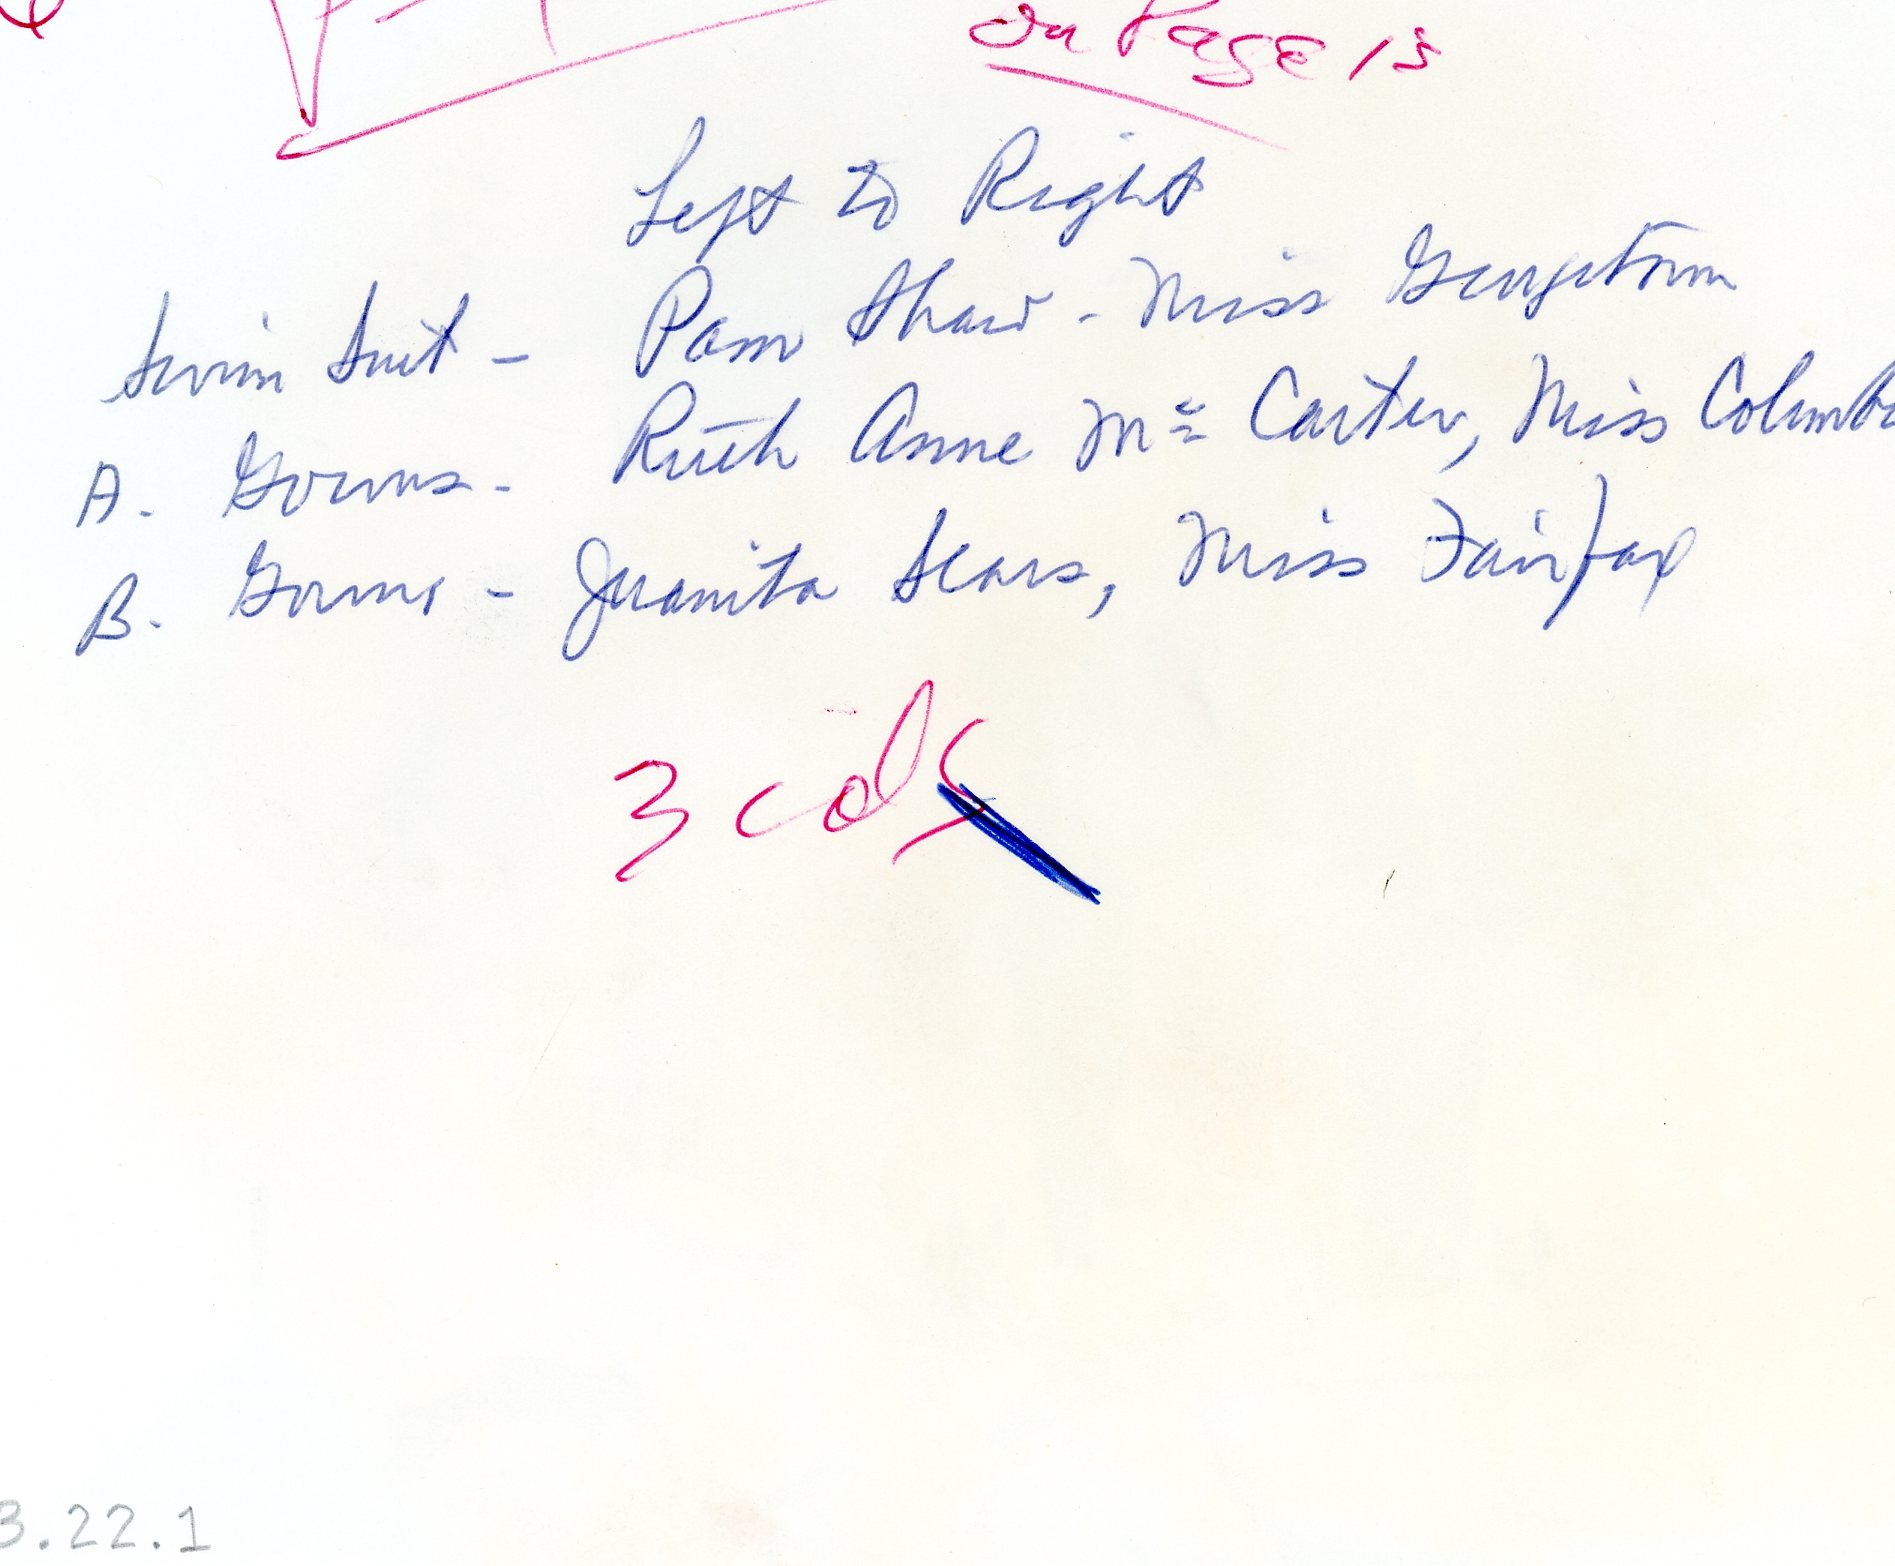 on Page 13
Left to Right
Swim Suit - Pam Shaw - Miss Georgetown
A. Gowns - Ruth Anne Mc Carter, Miss Columbi
B. Gowns - Juanita Sears, Miss Fairfax
3 cols
3.22.1